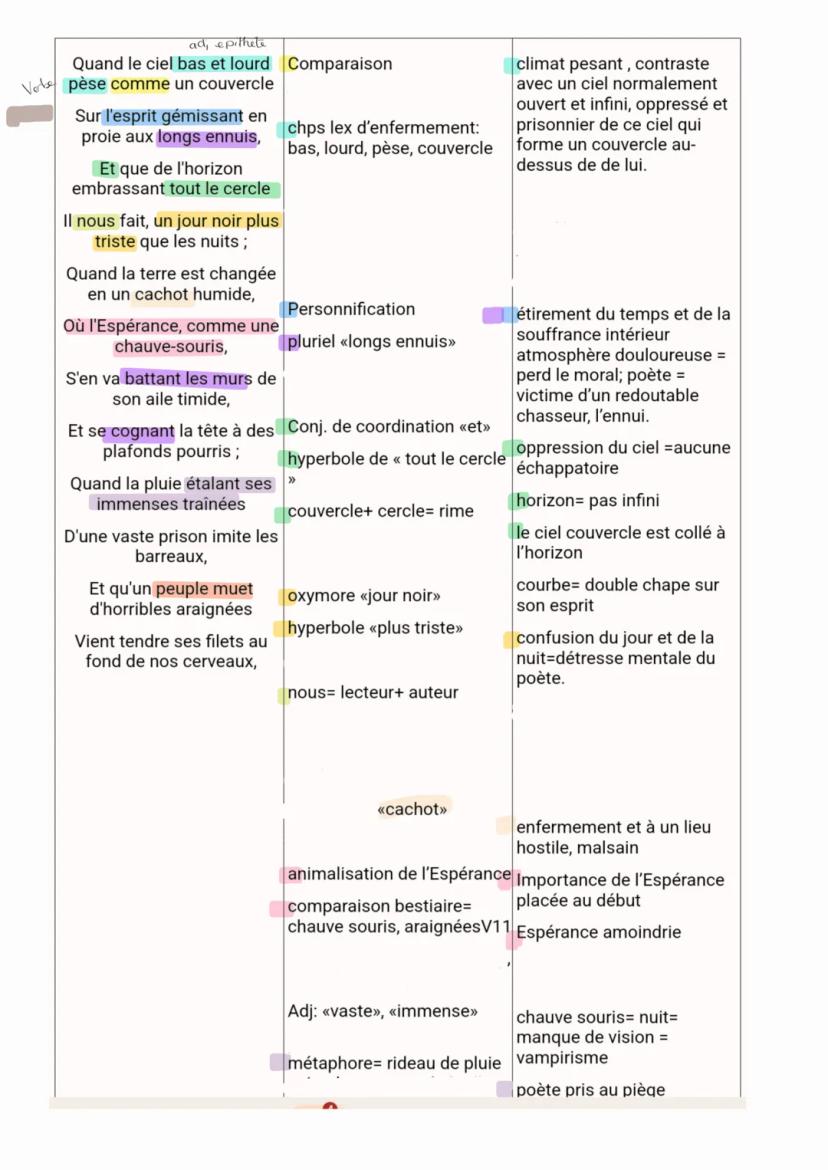 adj epithète
Verbe
Quand le ciel bas et lourd
pèse comme un couvercle
Sur l'esprit gémissant en
proie aux longs ennuis,
Et que de l'horizon
embrassant tout le cercle
Il nous fait, un jour noir plus
triste que les nuits ;
Quand la terre est changée
en un cachot humide,
Où l'Espérance, comme une
chauve-souris,
S'en va battant les murs de
son aile timide,
Et se cognant la tête à des
plafonds pourris ;
Quand la pluie étalant ses
immenses traînées
D'une vaste prison imite les
barreaux,
Et qu'un peuple muet
d'horribles araignées
Vient tendre ses filets au
fond de nos cerveaux,
Comparaison
chps lex d'enfermement:
bas, lourd, pèse, couvercle
Personnification
pluriel «longs ennuis»
Conj. de coordination «et»
hyperbole de « tout le cercle
»
couvercle+ cercle= rime
oxymore «jour noir»
hyperbole «plus triste»
nous= lecteur+ auteur
«cachot»
animalisation de l'Espérance
comparaison bestiaire=
chauve souris, araignéesV11
,
Adj: «vaste», «immense»
métaphore= rideau de pluie
climat pesant , contraste
avec un ciel normalement
ouvert et infini, oppressé et
prisonnier de ce ciel qui
forme un couvercle au-
dessus de de lui.
étirement du temps et de la
souffrance intérieur
atmosphère douloureuse =
perd le moral; poète =
victime d'un redoutable
chasseur, l'ennui.
oppression du ciel =aucune
échappatoire
horizon= pas infini
le ciel couvercle est collé à
l'horizon
courbe= double chape sur
son esprit
confusion du jour et de la
nuit=détresse mentale du
poète.
enfermement et à un lieu
hostile, malsain
Importance de l'Espérance
placée au début
Espérance amoindrie
chauve souris= nuit=
manque de vision =
vampirisme
poète pris au piège